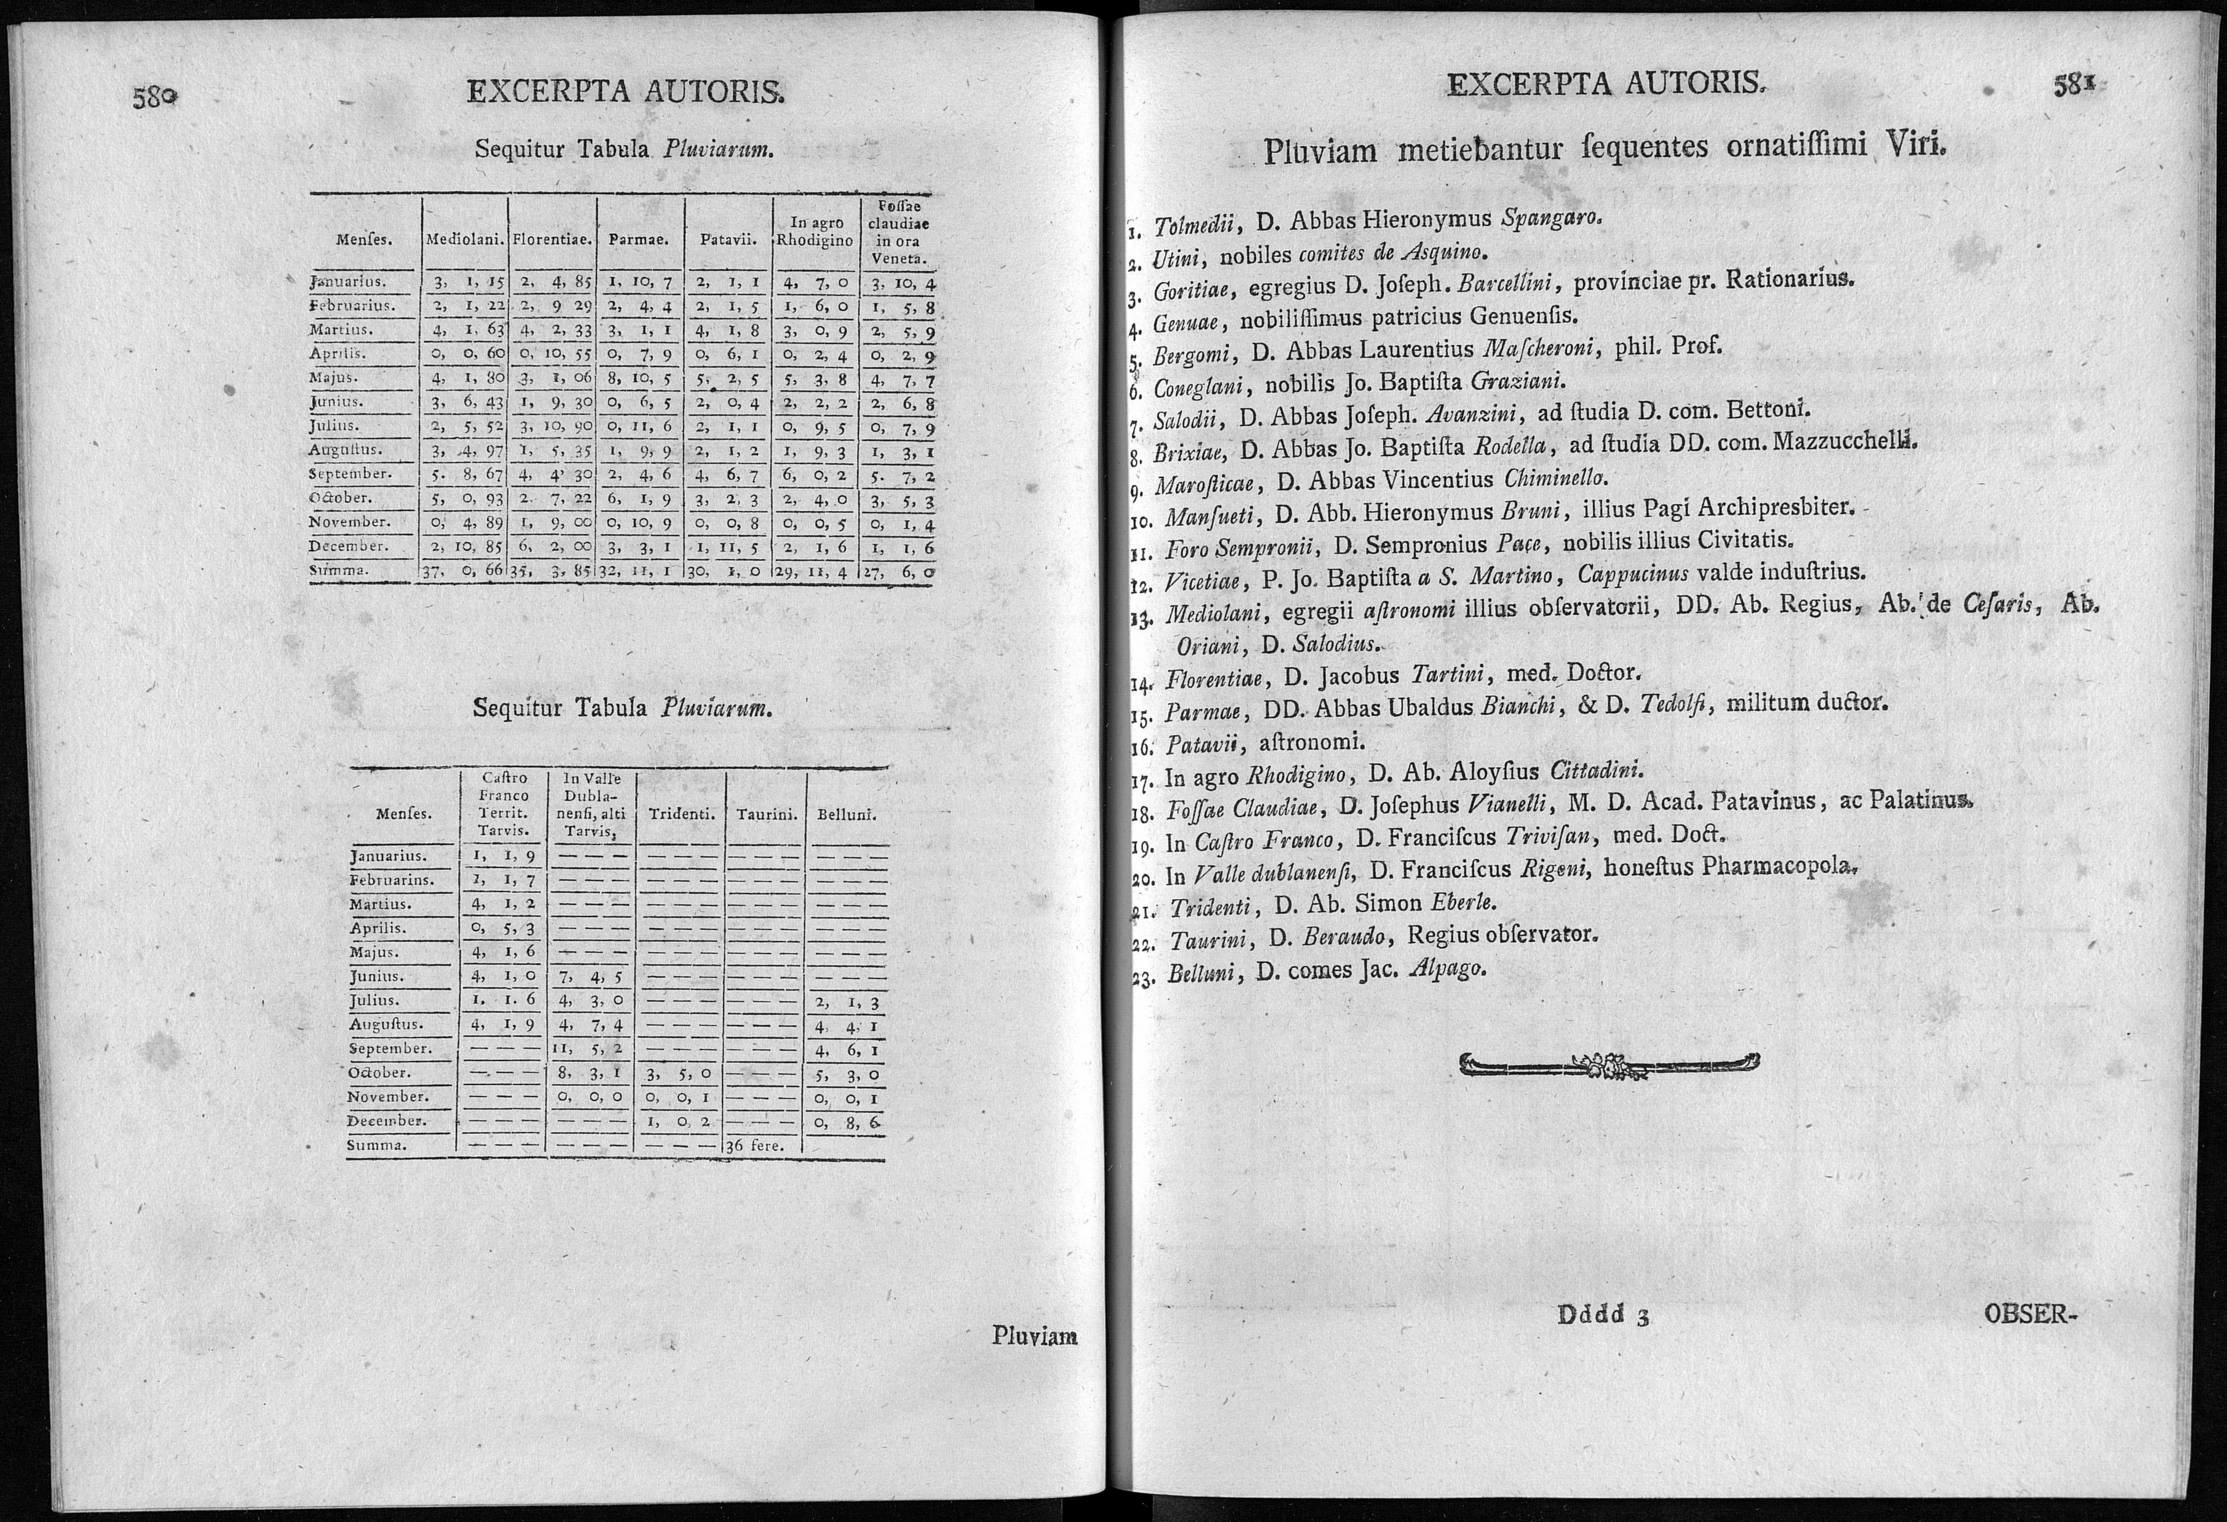 580
EXCERPTA AUTORIS.
Sequitur Tabula Pluviarum.
Menſes. Mediolani. Florentiae. Parmae. Patavii. In agro Rhodigino Foſſae claudiae in ora Veneta.
Januarius. 3, 1, 15 2, 4, 85 1, 10, 7 2, 1, 1 4, 7, 0 3, 10, 4
Februarius. 2, 1, 22 2, 9 29 2, 4, 4 2, 1, 5 1, 6, 0 1, 5, 8
Martius. 4, 1, 63 4, 2, 33 3, 1, 1 4, 1, 8 3, 0, 9 2, 5, 9
Aprilis. 0, 0, 60 0, 10, 55 0, 7, 9 0, 6, 1 0, 2, 4 0, 2, 9
Majus. 4, 1, 80 3, 1, 06 8, 10, 5 5, 2, 5 5, 3, 8 4, 7, 7
Junius. 3, 6, 43 1, 9, 30 0, 6, 5 2, 0, 4 2, 2, 2 2, 6, 8
Julius. 2, 5, 52 3, 10, 90 0, 11, 6 2, 1, 1 0, 9, 5 0, 7, 9
Auguſtus. 3, 4, 97 1, 5, 35 1, 9, 9 2, 1, 2 1, 9, 3 1, 3, 1
September. 5. 8, 67 4, 4, 30 2, 4, 6 4, 6, 7 6, 0, 2 5. 7, 2
October. 5, 0, 93 2. 7, 22 6, 1, 9 3, 2, 3 2, 4, 0 3, 5, 3
November. 0, 4, 89 1, 9, 00 0, 10, 9 0, 0, 8 0, 0, 5 0, 1, 4
December. 2, 10, 85 6, 2, 00 3, 3, 1 1, 11, 5 2, 1, 6 1, 1, 6
Summa. 37, 0, 66 35, 3, 85 32, 11, 1 30, 1, 0 29, 11, 4 27, 6, 0
Sequitur Tabula Pluviarum.
Menſes. Caſtro Franco Territ. Tarvis. In Valle Dubla-nenſi, alti Tarvis, Tridenti. Taurini. Belluni.
Januarius. 1, 1, 9 — — — — — — — — — — — —
Februarins. 1, 7 — — — — — — — — — — — —
Martius. 4, 1, 2 — — — — — — — — — — — —
Aprilis. 0, 5, 3 — — — — — — — — — — — —
Majus. 4, 1, 6 — — — — — — — — — — — —
Junius. 4, 1, 0 7, 4, 5 — — — — — — — — —
Julius. 1. 1. 6 4, 3, 0 — — — — — — 2, 1, 3
Auguſtus. 4, 1, 9 4, 7, 4 — — — — — — 4, 4, 1
September. — — — 11, 5, 2 — — — — — — 4, 6, 1
October. — — — 8, 3, 1 3, 5, 0 — — — 5, 3, 0
November. — — — 0, 0, 0 0, 0, 1 — — — 0, 0, 1
December. — — — — — — 1, 0, 2 — — — 0, 8, 6
Summa. — — — — — — — — — 36 fere.
Pluviam
EXCERPTA AUTORIS.
581
Pluviam metiebantur ſequentes ornatiſſimi Viri.
1. Tolmedii, D. Abbas Hieronymus Spangaro.
2. Utini, nobiles comites de Asquino.
3. Goritiae, egregius D. Joſeph. Barcellini, provinciae pr. Rationarius.
4. Genuae, nobiliſſimus patricius Genuenſis.
5. Bergomi, D. Abbas Laurentius Maſcheroni, phil. Prof.
6. Coneglani, nobilis Jo. Baptiſta Graziani.
7. Salodii, D. Abbas Joſeph. Avanzini, ad ſtudia D. com. Bettoni.
8. Brixiae, D. Abbas Jo. Baptiſta Rodella, ad ſtudia DD. com. Mazzucchelli.
9. Maroſticae, D. Abbas Vincentius Chiminello.
10. Manſueti, D. Abb. Hieronymus Bruni, illius Pagi Archipresbiter.
11. Foro Sempronii, D. Sempronius Pace, nobilis illius Civitatis.
12. Vicetiae, P. Jo. Baptiſta a S. Martino, Cappucinus valde induſtrius.
13. Mediolani, egregii aſtronomi illius obſervatorii, DD. Ab. Regius, Ab. de Ceſaris, Ab.
Oriani, D. Salodius.
14. Florentiae, D. Jacobus Tartini, med. Doctor.
15. Parmae, DD. Abbas Ubaldus Bianchi, & D. Tedolſi, militum ductor.
16. Patavii, aſtronomi.
17. In agro Rhodigino, D. Ab. Aloyſius Cittadini.
18. Foſſae Claudiae, D. Joſephus Vianelli, M. D. Acad. Patavinus, ac Palatinus.
19. In Caſtro Franco, D. Franciſcus Triviſan, med. Doct.
20. In Valle dublanenſi, D. Franciſcus Rigoni, honeſtus Pharmacopola.
21. Tridenti, D. Ab. Simon Eberle.
22. Taurini, D. Beraudo, Regius obſervator.
23. Belluni, D. comes Jac. Alpago.
Dddd 3
OBSER-